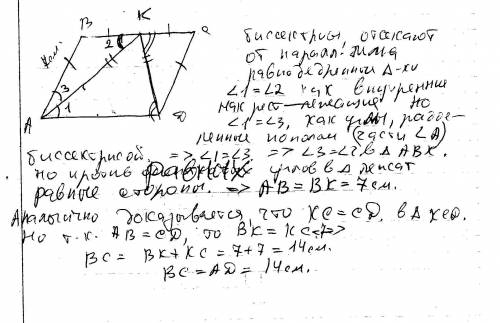 B K C
7см
2
3
1
A D
биссектрисы отсекают
от паралл-мма
равнобедренные Δ-ки
∠1=∠2 как внутренние
накрест лежащие но
∠1=∠3, как углы, разде-
ленные пополам (части ∠A)
биссектрисой. => ∠1=∠3 => ∠3=∠2, в Δ ABK.
но против равных углов в Δ лежат
равные стороны. => AB=BK=7см.
Аналогично доказывается, что KC=CD, в Δ KCD.
Но т.к. AB=CD, то BK=KC=7=>
BC = BK+KC=7+7=14см.
BC=AD=14см.